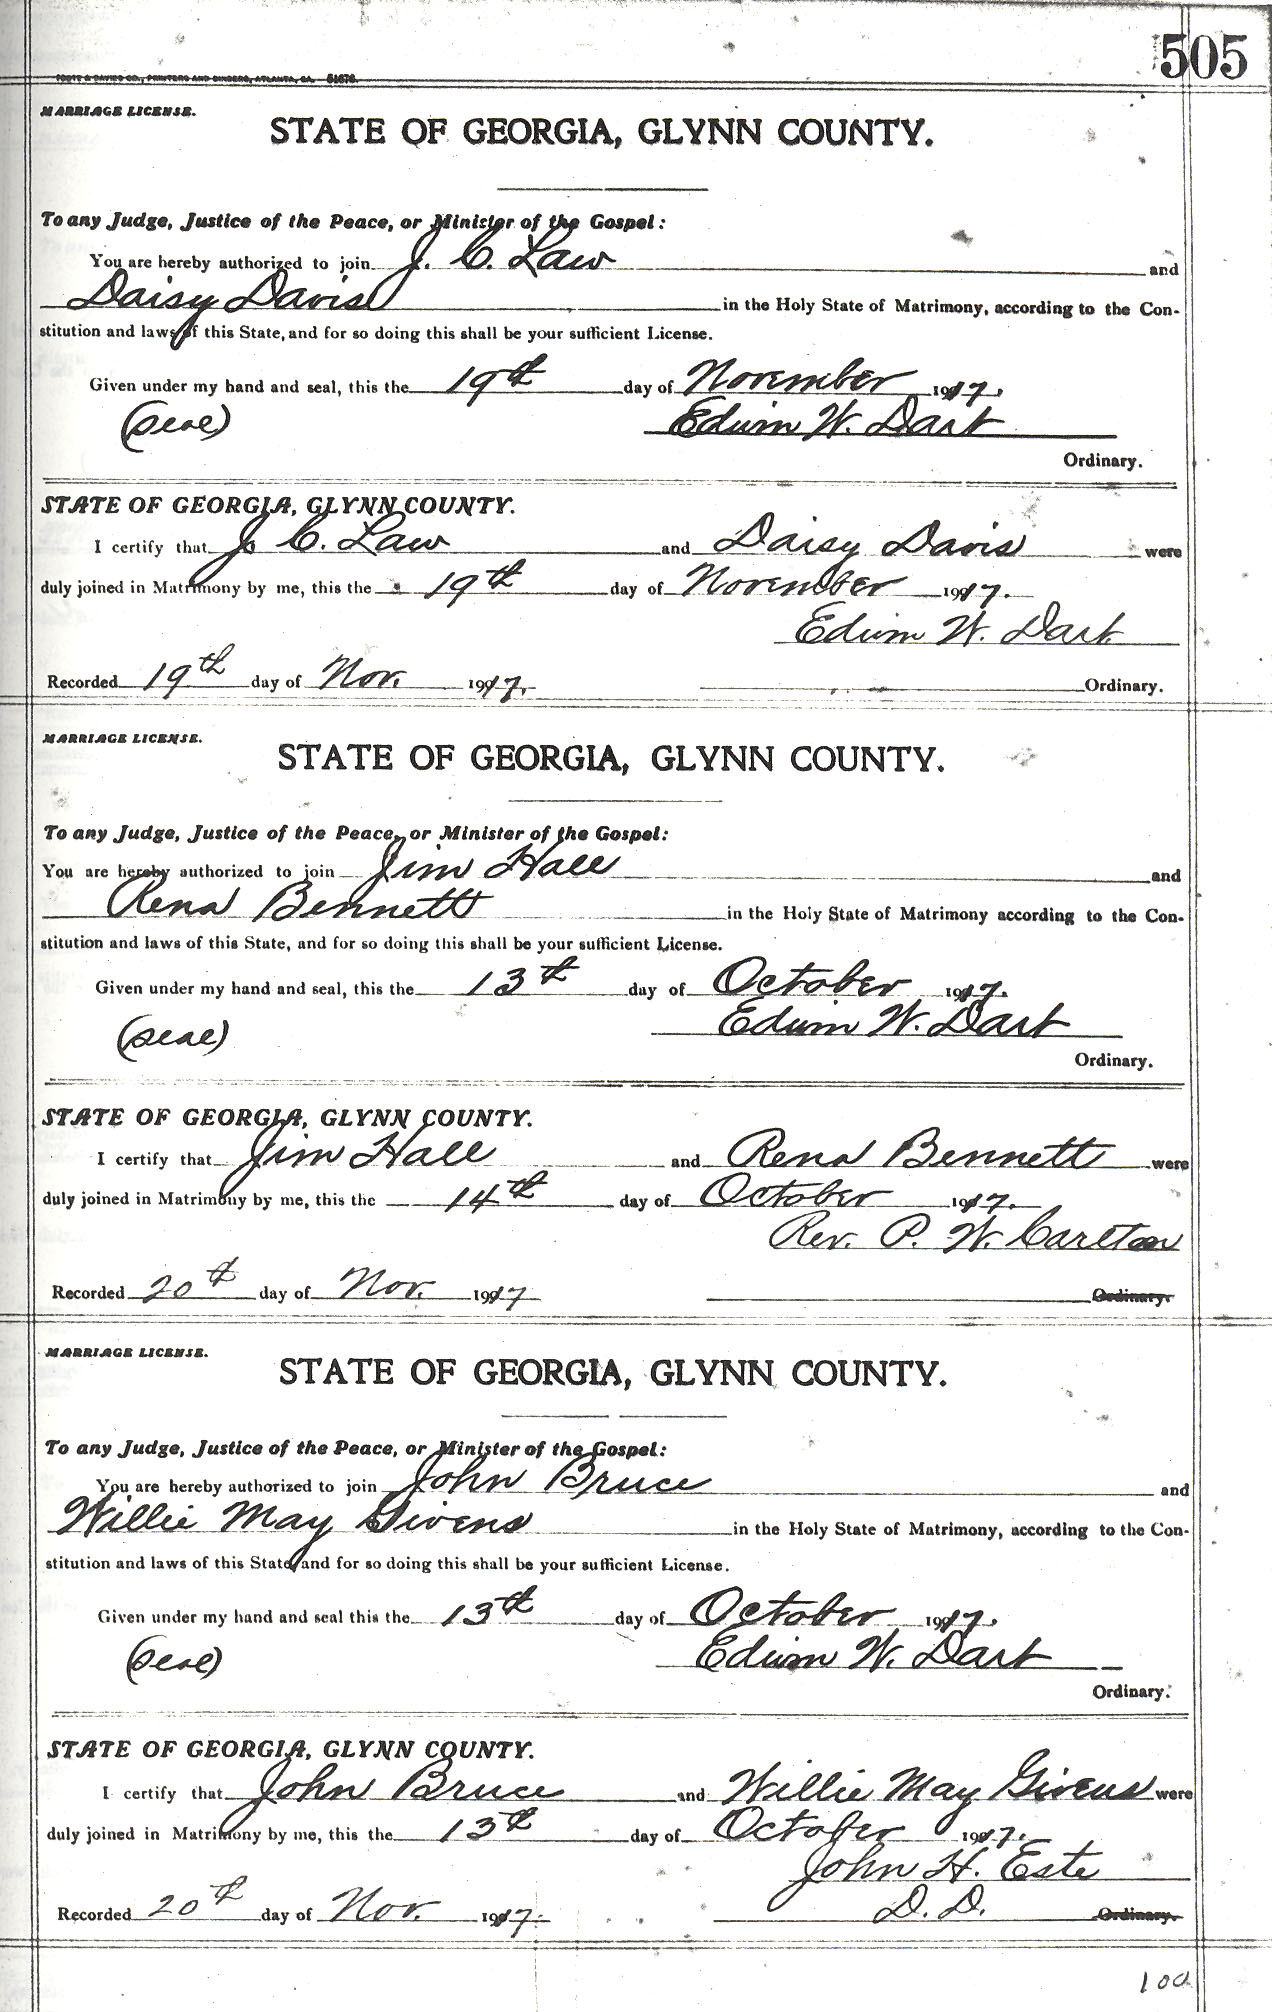 505
FOOTE & DAVIES CO., PRINTERS AND BINDERS, ATLANTA, GA. 51676
MARRIAGE LICENSE.
STATE OF GEORGIA, GLYNN COUNTY.
To any Judge, Justice of the Peace, or Minister of the Gospel:
You are hereby authorized to join J. C. Law and
Daisy Davis in the Holy State of Matrimony, according to the Con-
stitution and laws of this State, and for so doing this shall be your sufficient License.
Given under my hand and seal, this the 19th day of November 1917.
(seal) Edwin W. Dart
Ordinary.
STATE OF GEORGIA, GLYNN COUNTY.
I certify that J. C. Law and Daisy Davis were
duly joined in Matrimony by me, this the 19th day of November 1917.
Edwin W. Dart
Recorded 19th day of Nov. 1917. Ordinary.
MARRIAGE LICENSE.
STATE OF GEORGIA, GLYNN COUNTY.
To any Judge, Justice of the Peace, or Minister of the Gospel:
You are hereby authorized to join Jim Hall and
Rena Bennett in the Holy State of Matrimony according to the Con-
stitution and laws of this State, and for so doing this shall be your sufficient License.
Given under my hand and seal, this the 13th day of October 1917.
(seal) Edwin W. Dart
Ordinary.
STATE OF GEORGIA, GLYNN COUNTY.
I certify that Jim Hall and Rena Bennett were
duly joined in Matrimony by me, this the 14th day of October 1917.
Rev. P. W. Carlton
Recorded 20th day of Nov. 1917 Ordinary.
MARRIAGE LICENSE.
STATE OF GEORGIA, GLYNN COUNTY.
To any Judge, Justice of the Peace, or Minister of the Gospel:
You are hereby authorized to join John Bruce and
Willie May Givens in the Holy State of Matrimony, according to the Con-
stitution and laws of this State, and for so doing this shall be your sufficient License.
Given under my hand and seal this the 13th day of October 1917.
(seal) Edwin W. Dart
Ordinary.
STATE OF GEORGIA, GLYNN COUNTY.
I certify that John Bruce and Willie May Givens were
duly joined in Matrimony by me, this the 13th day of October 1917.
John H. Este
Recorded 20th day of Nov. 1917. D. D. Ordinary.